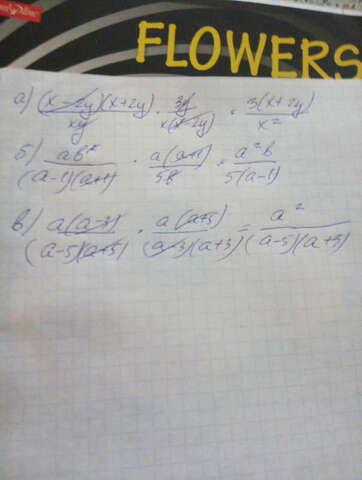 FLOWERS
а) (x-2y)(x+2y)/xy · 3y/x(x-2y) = 3(x+2y)/x²
б) ab²/(a-1)(a+1) · a(a+1)/5b = a²b/5(a-1)
в) a(a-3)/(a-5)(a+5) · a(a+5)/(a-3)(a+3) = a²/(a-5)(a+3)